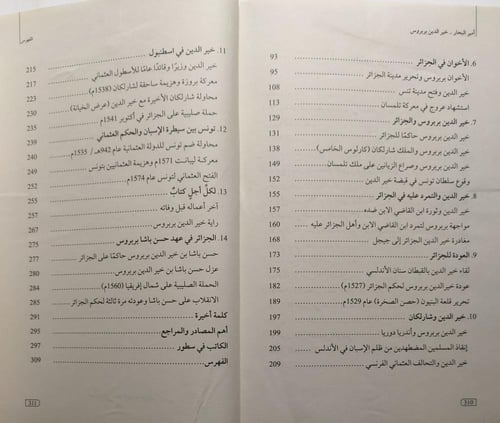 أمير البحار .. خير الدين بربروس
6. الأخوان في الجزائر ........ 93
الأخوان بربروس وتحرير مدينة الجزائر ........ 95
خير الدين وفتح مدينة تنس ........ 108
استشهاد عروج في معركة تلمسان ........ 113
7. خير الدين بربروس والجزائر ........ 129
خير الدين بربروس حاكمًا للجزائر ........ 131
خير الدين بربروس والملك شارلكان (كارلوس الخامس) ........ 138
خير الدين بربروس وصراع الزيانيين على ملك تلمسان ........ 149
وقوع سلطان تونس في قبضة خير الدين ........ 152
8. خير الدين والتمرد عليه في الجزائر ........ 155
خير الدين وثورة ابن القاضي الابن ضده ........ 157
مواجهة بربروس لتمرد ابن القاضي الابن وأهل الجزائر عليه ........ 160
مغادرة خير الدين الجزائر إلى جيجل ........ 168
9. العودة للجزائر ........ 173
لقاء خير الدين بربروس بالقبطان سنان الأندلسي ........ 175
عودة خير الدين بربروس لحكم الجزائر (1527م) ........ 182
تحرير قلعة البنيون (حصن الصخرة) عام 1529م ........ 189
10. خير الدين وشارلكان ........ 197
خير الدين بربروس وأندريا دوريا ........ 199
إنقاذ المسلمين المضطهدين من ظلم الإسبان في الأندلس ........ 205
خير الدين والتحالف العثماني الفرنسي ........ 209
310
الفهرس
11. خير الدين في اسطنبول ........ 215
خير الدين وزيرًا وقائدًا عامًا للأسطول العثماني ........ 217
معركة بروزة وهزيمة ساحقة لشارلكان (1538م) ........ 223
محاولة شارلكان الأخيرة مع خير الدين (عرض الخيانة) ........ 230
حملة صليبية على الجزائر في أكتوبر 1541م ........ 232
12. تونس بين سيطرة الإسبان والحكم العثماني ........ 239
محاولة ضم تونس للدولة العثمانية عام 942هـ/ 1535م ........ 240
معركة ليبانت 1571م وهزيمة العثمانيين بتونس ........ 249
الفتح العثماني لتونس عام 1574م ........ 252
13. لكلّ أجلٍ كتابٌ ........ 255
آخر أعماله قبل وفاته ........ 257
راية خير الدين بربروس ........ 267
14. الجزائر في عهد حسن باشا بربروس ........ 275
حسن باشا بن خير الدين بربروس حاكمًا على الجزائر ........ 277
عزل حسن باشا بن خير الدين بربروس ........ 282
الحملة الصليبية على شمال إفريقيا (1560م) ........ 284
الانقلاب على حسن باشا وعودته مرة ثالثة لحكم الجزائر ........ 287
كلمة أخيرة ........ 291
أهم المصادر والمراجع ........ 295
الكاتب في سطور ........ 299
الفهرس ........ 309
311